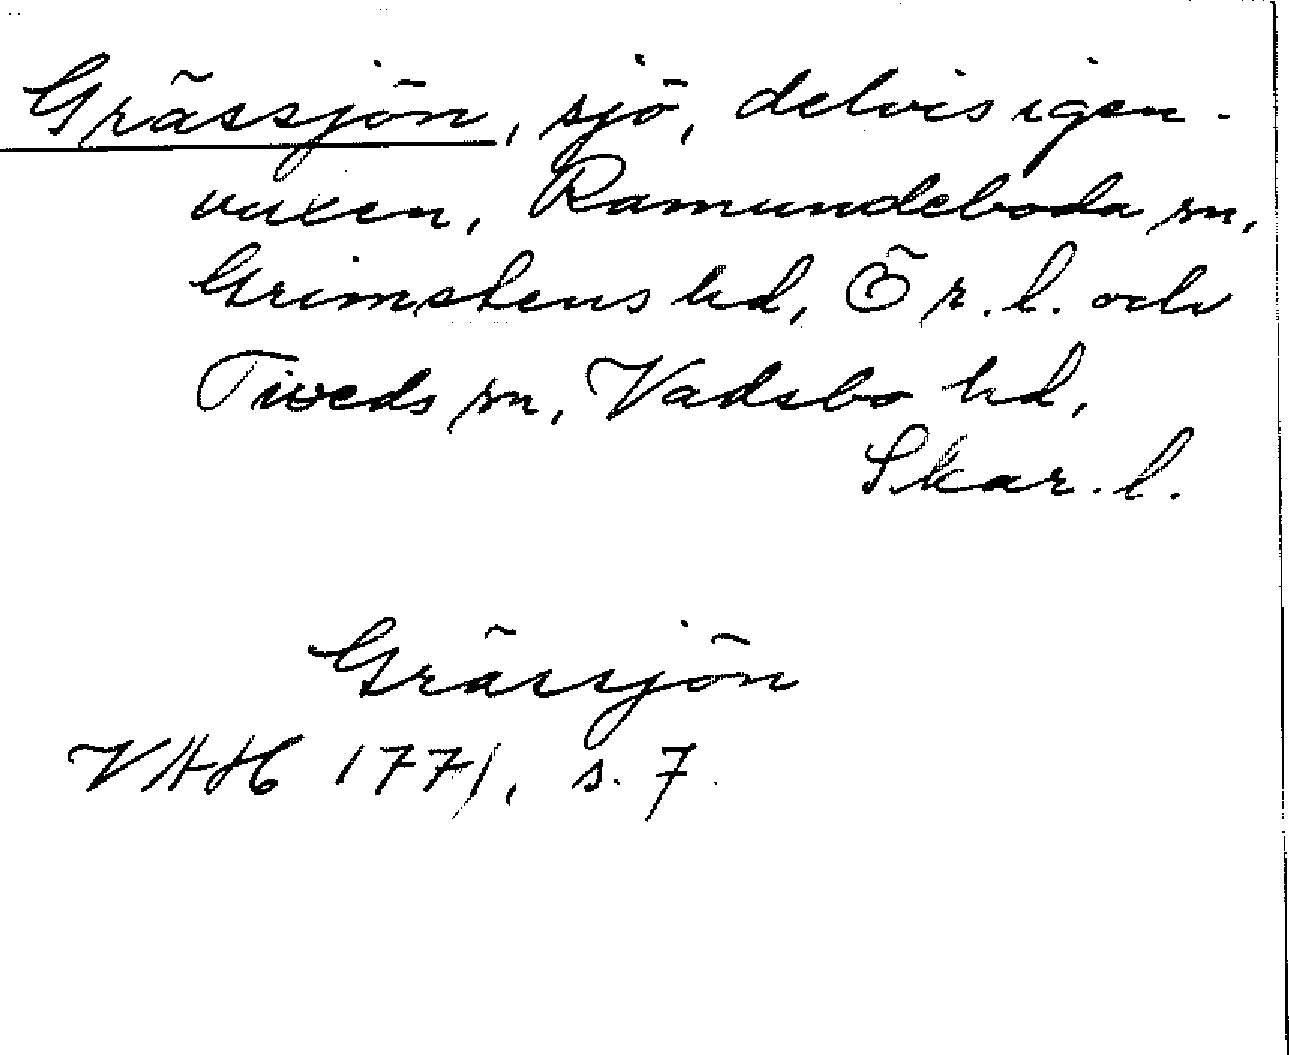 Grässjön, sjö, delvis igen-
vuxen, Ramundeboda sn,
Grimstens hd, Ör. l. och
Tiveds sn, Vadsbo hd,
Skar. l.
Grässjön
VAH 1771, s. 7.